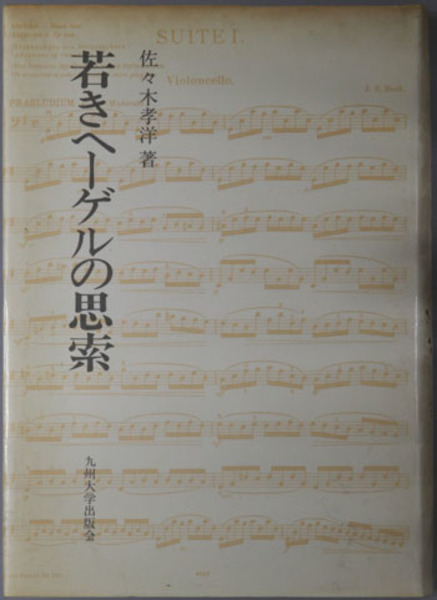 若きヘーゲルの思索
佐々木孝洋 著
九州大学出版会
SUITE I.
Violoncello.
J. S. Bach.
PRAELUDIUM